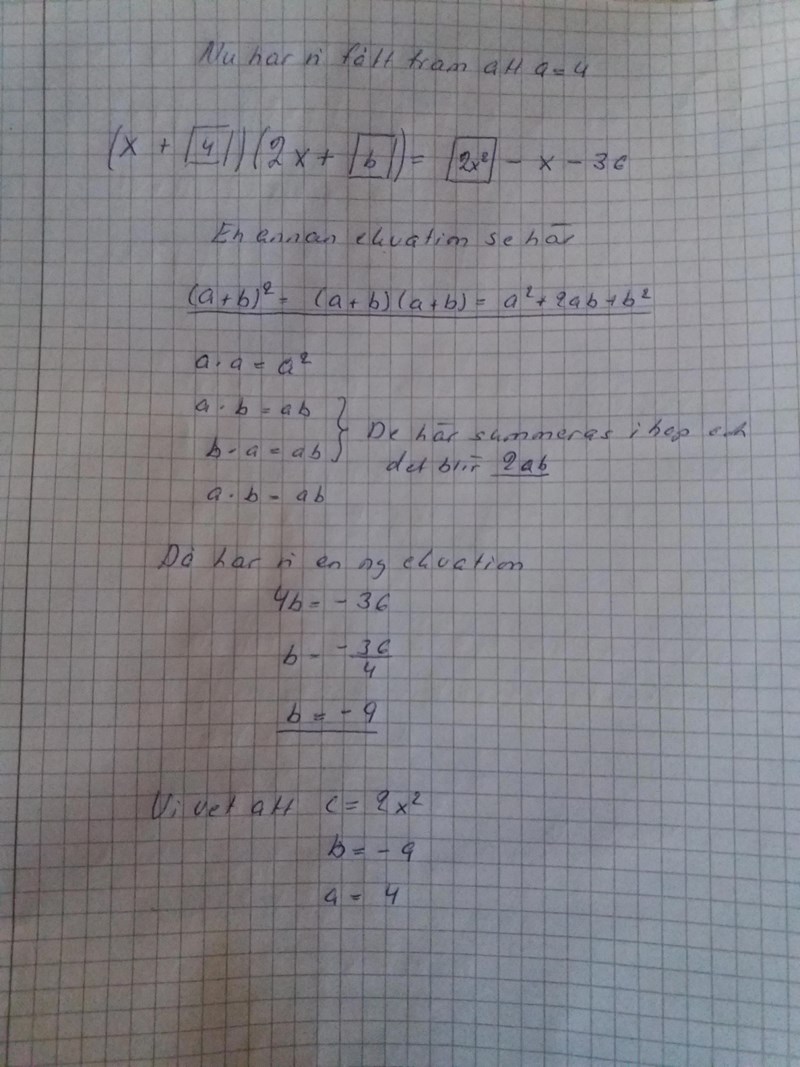 Nu har vi fått fram att a=4
(x + 4)(2x + b) = 2x² - x - 36
En annan ekvation se här
(a+b)² = (a+b)(a+b) = a² + 2ab + b²
a · a = a²
a · b = ab
b · a = ab } De här summeras ihop och
det blir 2ab
a · b = ab
Då har vi en ny ekvation
4b = - 36
b = -36/4
b = - 9
Vi vet att c = 2x²
b = - 9
a = 4